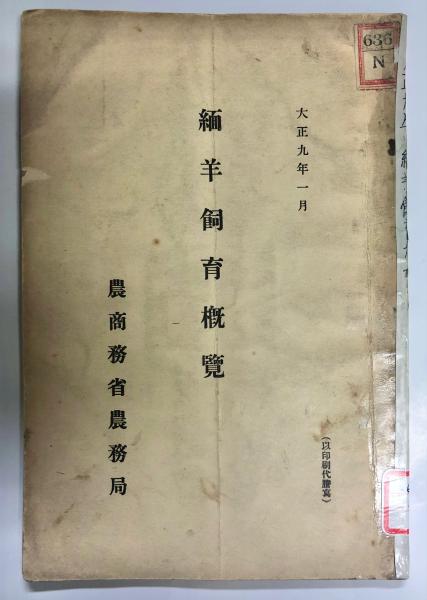 636
N
大正九年一月
緬羊飼育概覽
農商務省農務局
(以印刷代謄寫)